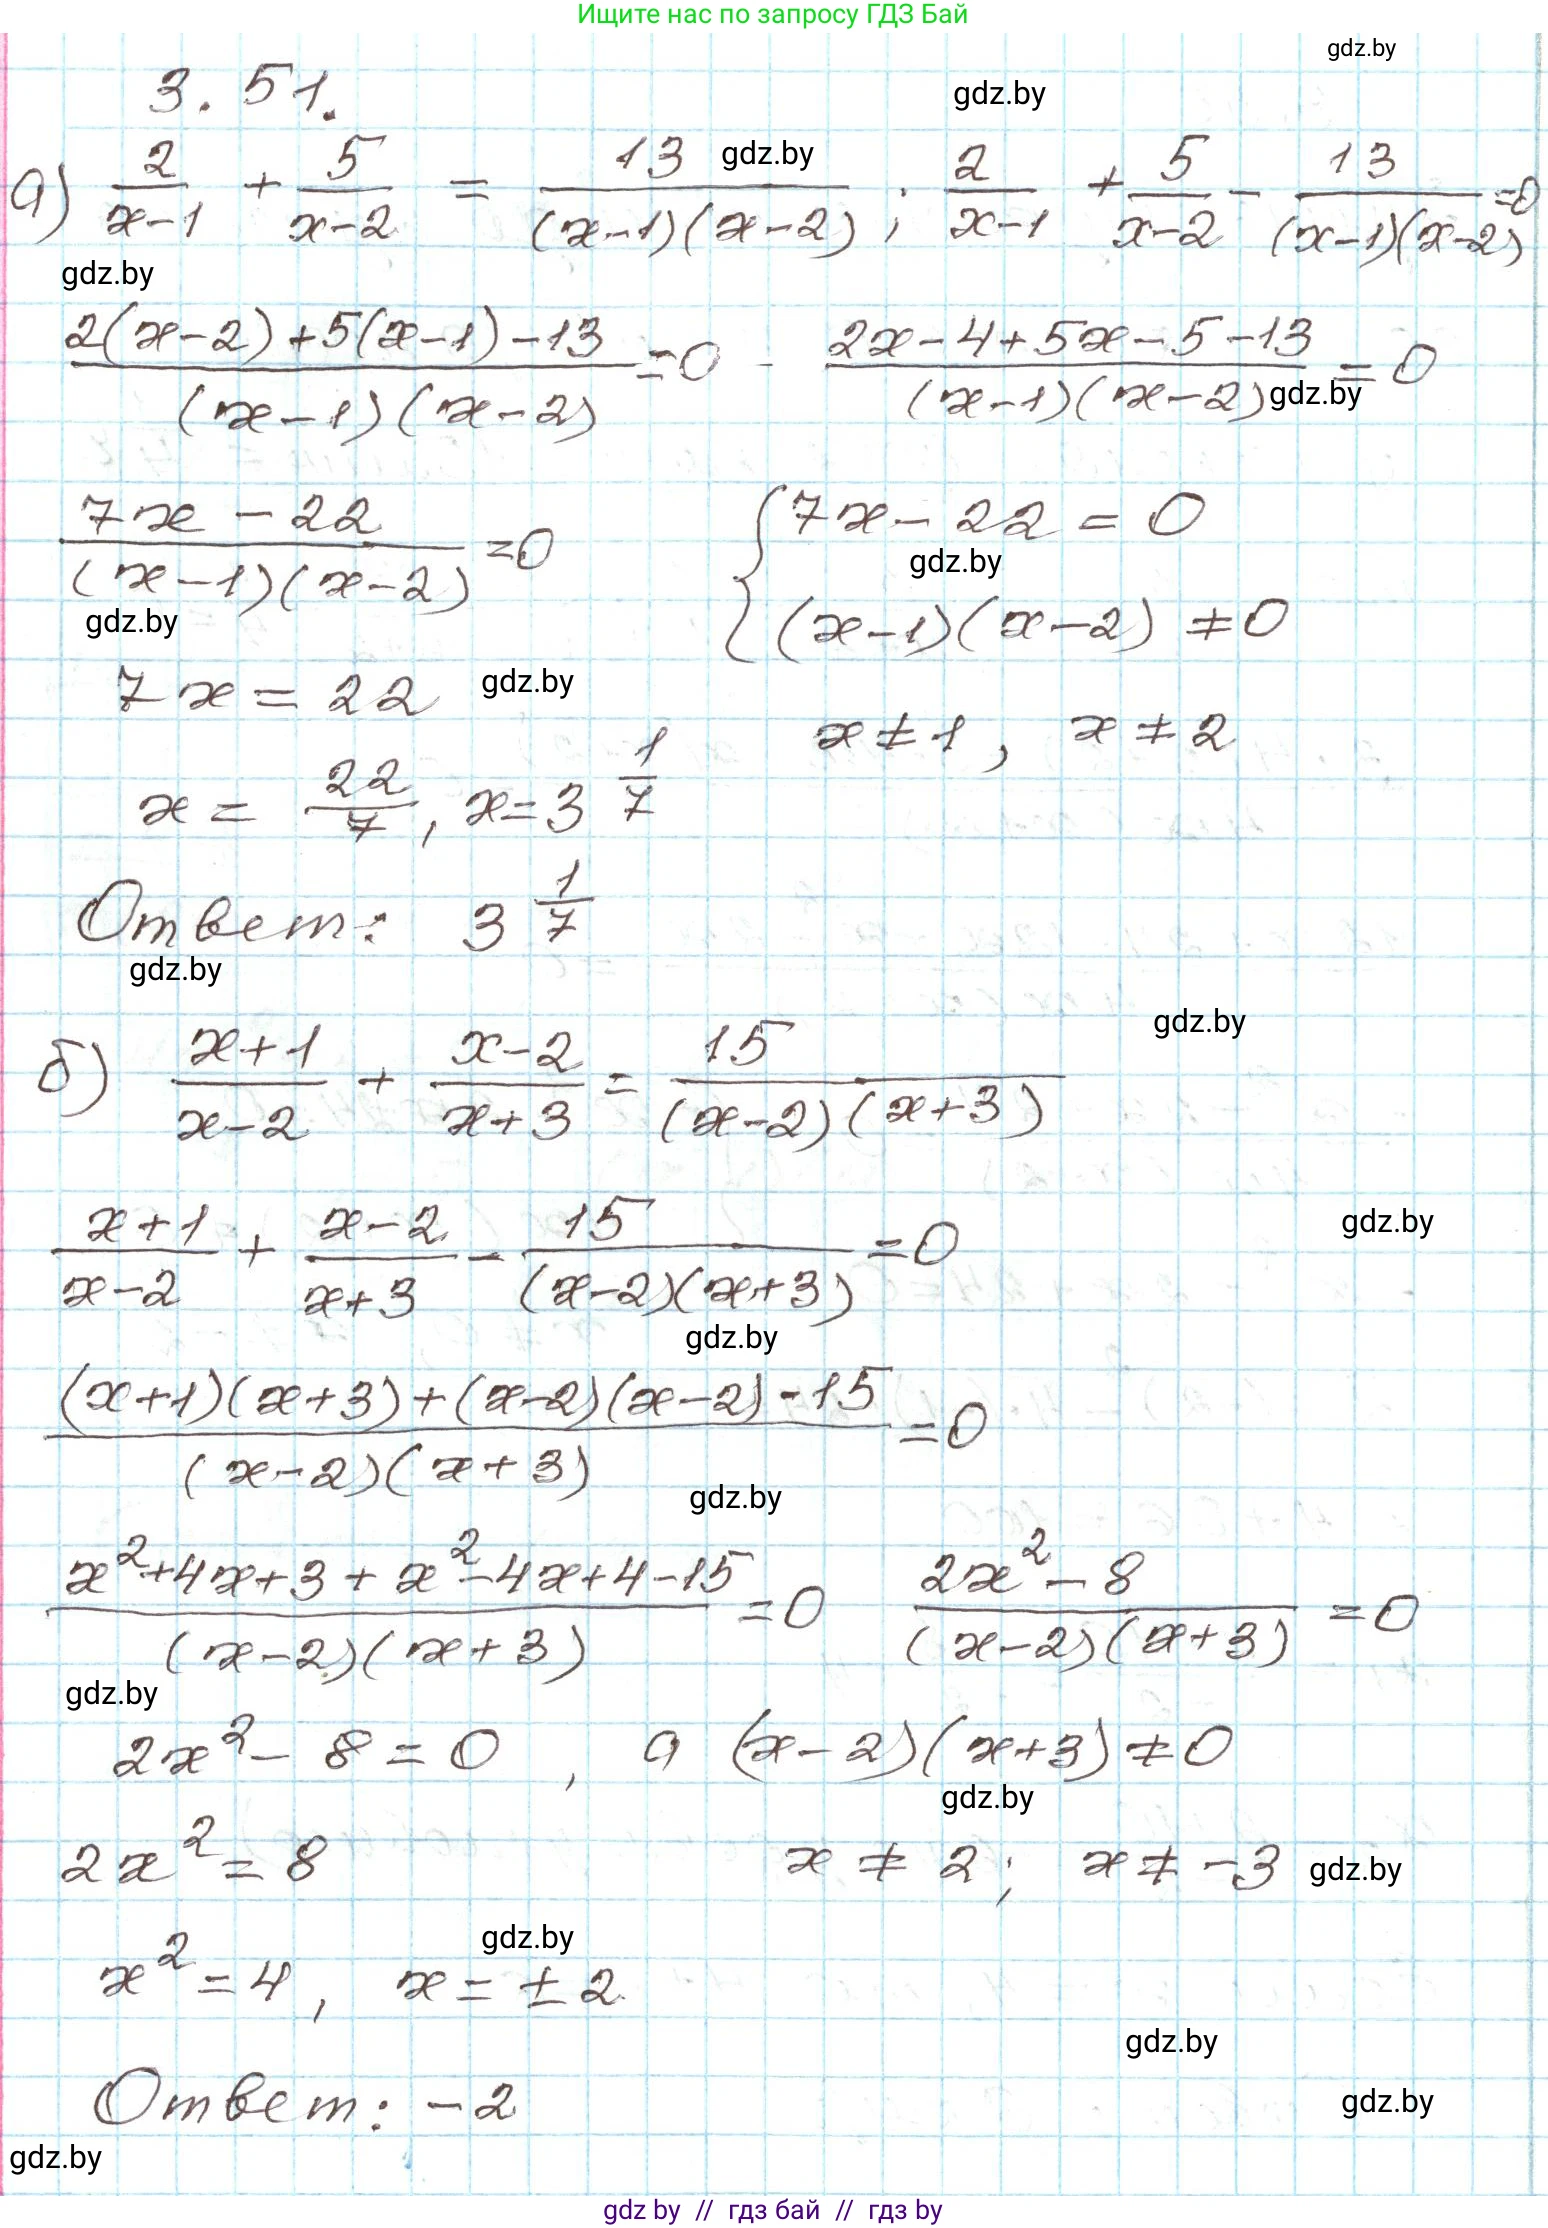 Ищите нас по запросу ГДЗ Бай
gdz.by
3.51. gdz.by
а) 2/(x-1) + 5/(x-2) = 13/((x-1)(x-2)) ; 2/(x-1) + 5/(x-2) - 13/((x-1)(x-2)) = 0
gdz.by
gdz.by
(2(x-2)+5(x-1)-13)/((x-1)(x-2)) = 0 - (2x-4+5x-5-13)/((x-1)(x-2)) = 0
gdz.by
(7x-22)/((x-1)(x-2)) = 0 { 7x-22=0
gdz.by
(x-1)(x-2) ≠ 0
gdz.by
7x = 22 gdz.by
x ≠ 1, x ≠ 2
x = 22/7, x = 3 1/7
Ответ: 3 1/7
gdz.by
gdz.by
б) (x+1)/(x-2) + (x-2)/(x+3) = 15/((x-2)(x+3))
(x+1)/(x-2) + (x-2)/(x+3) - 15/((x-2)(x+3)) = 0 gdz.by
gdz.by
((x+1)(x+3)+(x-2)(x-2)-15)/((x-2)(x+3)) = 0
gdz.by
(x²+4x+3+x²-4x+4-15)/((x-2)(x+3)) = 0 (2x²-8)/((x-2)(x+3)) = 0
gdz.by
2x²-8=0, а (x-2)(x+3) ≠ 0
gdz.by
2x² = 8 x ≠ 2; x ≠ -3 gdz.by
gdz.by
x² = 4, x = ±2
gdz.by
Ответ: -2 gdz.by
gdz.by
gdz by // гдз бай // гдз by